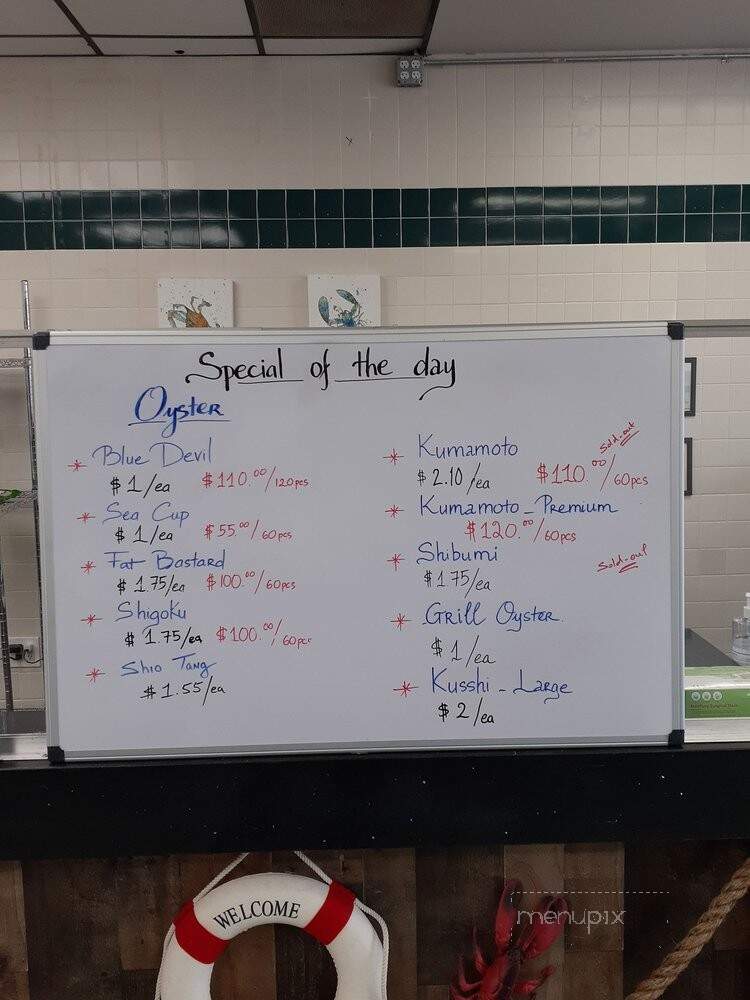 Special of the day
Oyster
* Blue Devil
$1/ea $110.00/120pcs
* Sea Cup
$1/ea $55.00/60pcs
* Fat Bastard
$1.75/ea $100.00/60pcs
* Shigoku
$1.75/ea $100.00/60pcs
* Shio Tang
$1.55/ea
Sold-out
* Kumamoto
$2.10/ea $110.00/60pcs
* Kumamoto-Premium
$120.00/60pcs
* Shibumi Sold-out
$1.75/ea
* Grill Oyster
$1/ea
* Kusshi-Large
$2/ea
WELCOME
menupix